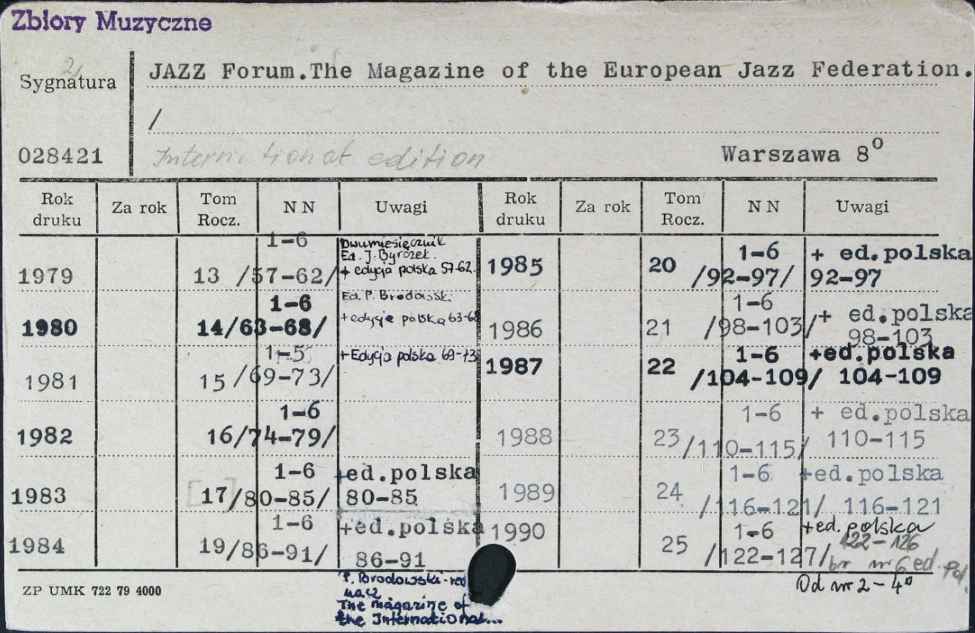 Zbiory Muzyczne
Sygnatura
2
028421
JAZZ Forum.The Magazine of the European Jazz Federation.
/
International edition
Warszawa 8⁰
Rok druku Za rok Tom Rocz. NN Uwagi Rok druku Za rok Tom Rocz. NN Uwagi
1979 13 1-6 /57-62/
Dwumiesięcznik
Ed. J. Byrczek.
+ edycja polska 57-62.
1980 14 1-6 /63-68/
Ed. P. Brodowski
+edycje polska 63-68
1981 15 1-5 /69-73/
+Edycja polska 69-73
1982 16 1-6 /74-79/
1983 [17] 1-6 /80-85/
+ed.polska
80-85
1984 19 1-6 /86-91/
+ed.polska
86-91
P. Brodowski-red
nacz
The magazine of
the International...
1985 20 1-6 /92-97/
+ ed.polska
92-97
1986 21 1-6 /98-103/
+ ed.polska
98-103
1987 22 1-6 /104-109/
+ed.polska
104-109
1988 23 1-6 /110-115/
+ ed.polska
110-115
1989 24 1-6 /116-121/
+ed.polska
116-121
1990 25 1-6 /122-127/
+ed.polska
122-126
br nr 6 ed. pol.
Od nr 2 - 4⁰
ZP UMK 722 79 4000